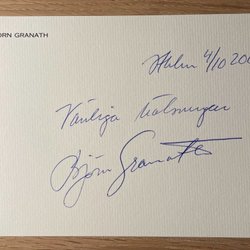 BJÖRN GRANATH
Sthlm 4/10 200
Vänliga hälsningar
Björn Granath